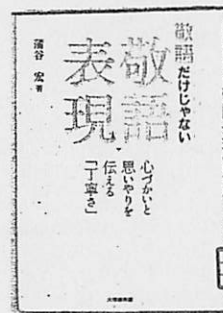 敬語だけじゃない
敬語
表現
心づかいと
思いやりを
伝える
「丁寧さ」
蒲谷 宏 著
大修館書店